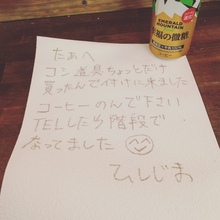 EMERALD
MOUNTAIN
至福の微糖
たあへ
コン道具ちょっとだけ
買ったんで付けに来ました
コーヒーのんで下さい
TELしたら階段で
なってました
ひしじま